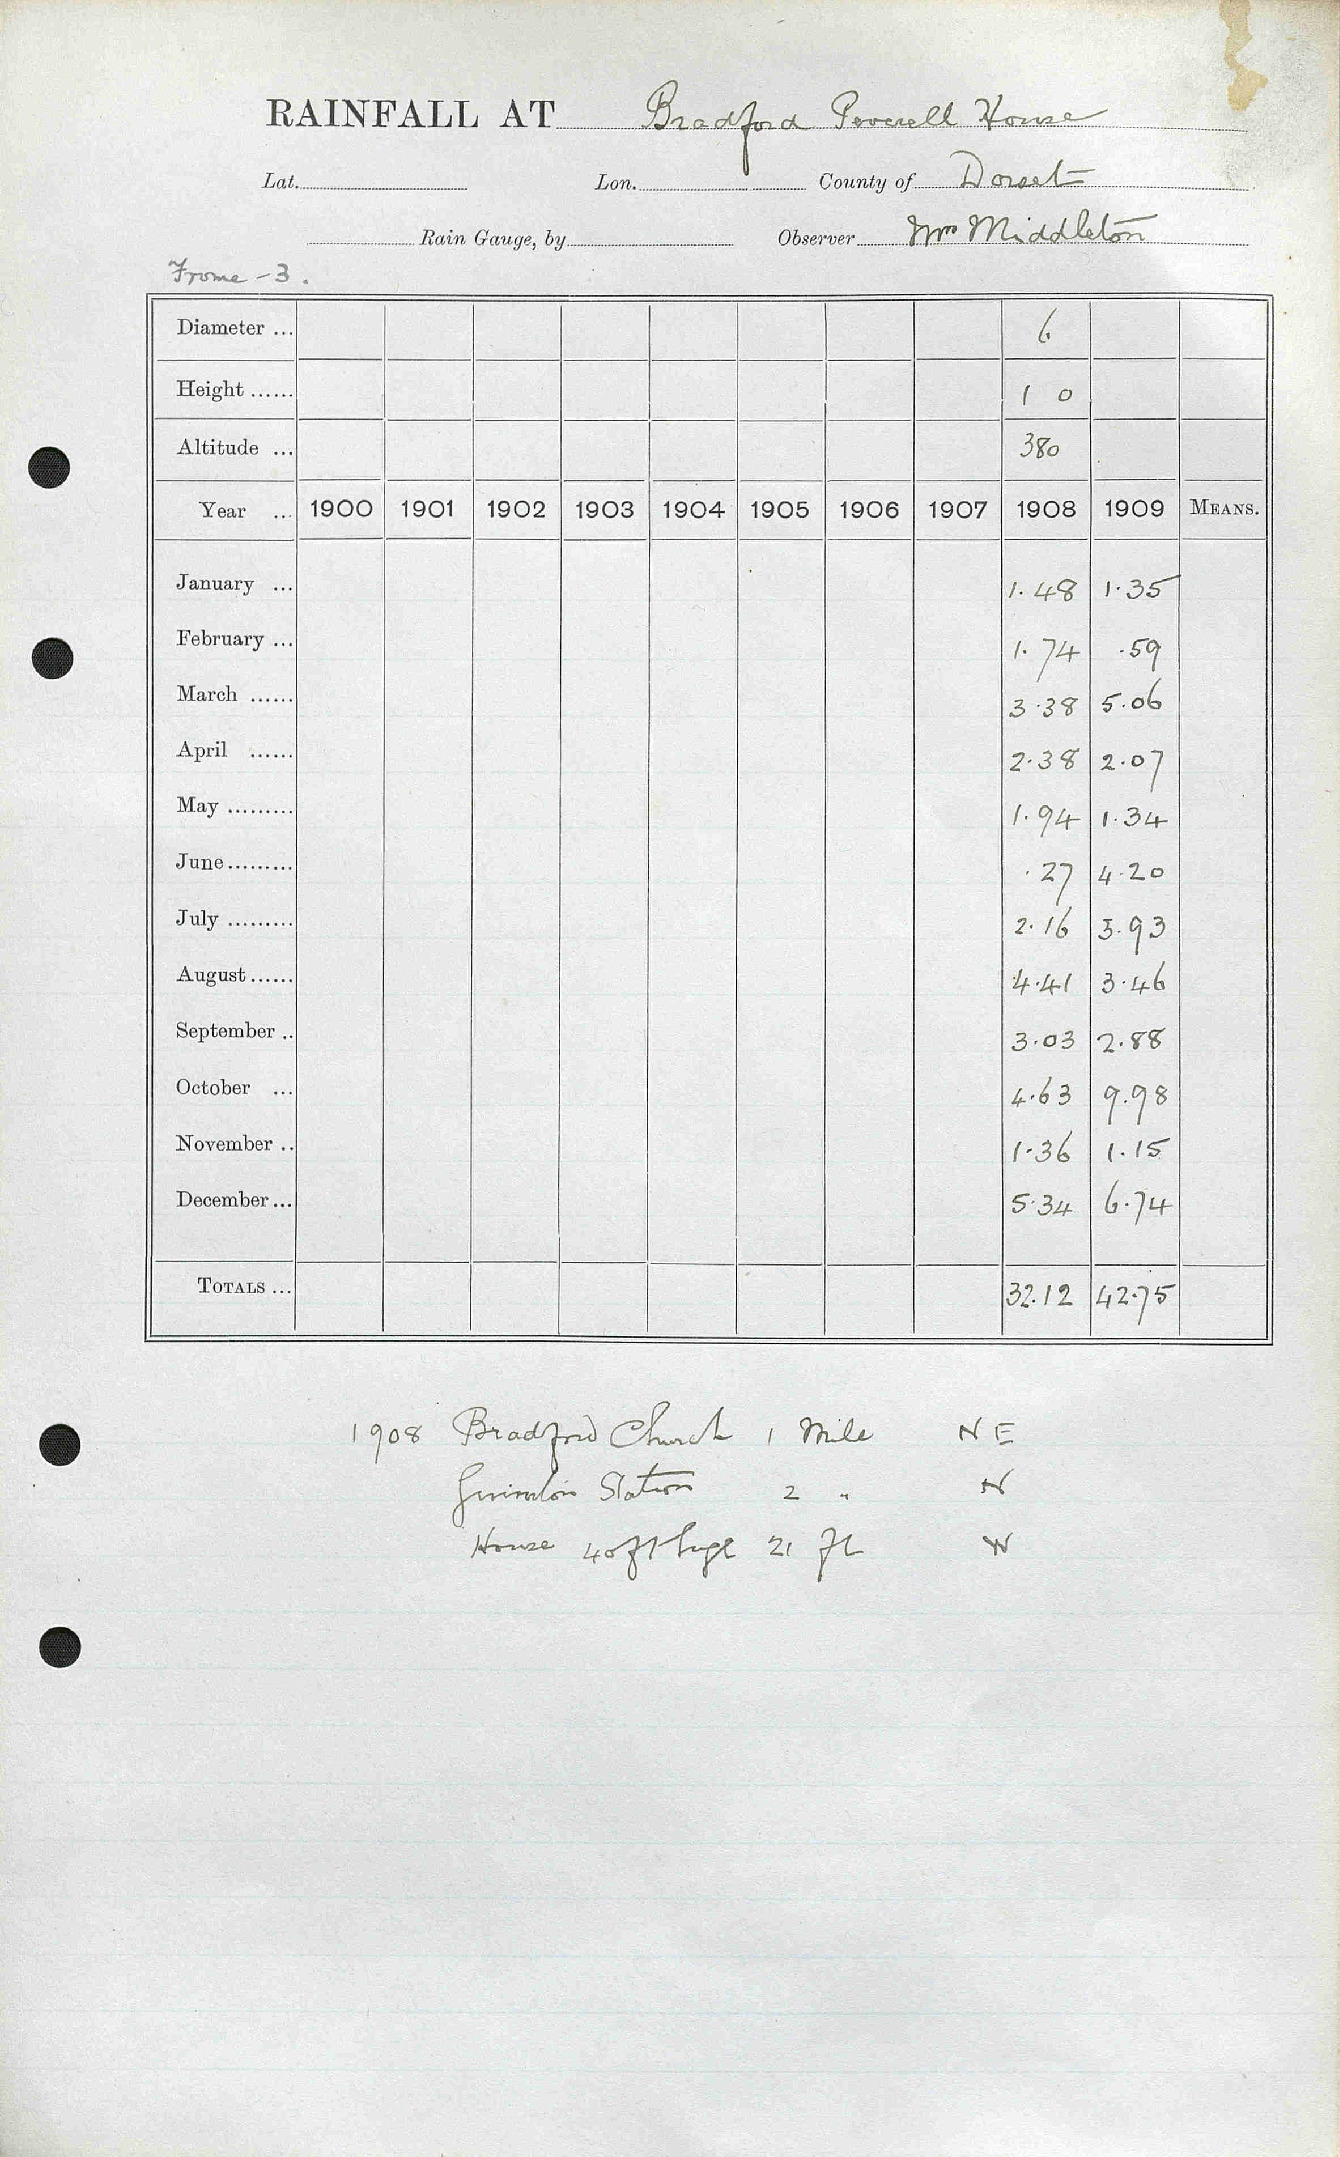 RAINFALL AT Bradford Peverell House
Lat. Lon. County of Dorset
Rain Gauge, by Observer Mrs Middleton
Frome - 3.
Diameter ... 6
Height ...... 1 0
Altitude ... 380
Year ... 1900 1901 1902 1903 1904 1905 1906 1907 1908 1909 MEANS.
January ... 1.48 1.35
February ... 1.74 .59
March ...... 3.38 5.06
April ...... 2.38 2.07
May ......... 1.94 1.34
June ......... .27 4.20
July ......... 2.16 3.93
August ...... 4.41 3.46
September .. 3.03 2.88
October ... 4.63 9.98
November .. 1.36 1.15
December ... 5.34 6.74
TOTALS ... 32.12 42.75
1908 Bradford Church 1 Mile NE
Station 2 " N
House 40 ft high 21 ft W